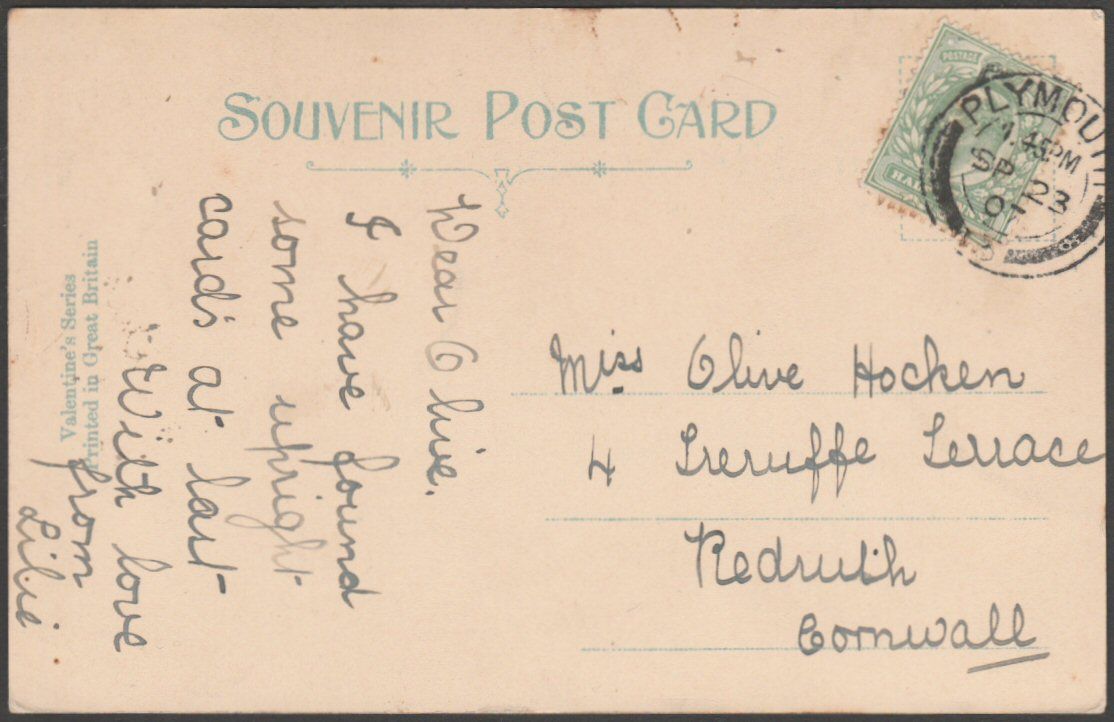 SOUVENIR POST CARD
POSTAGE
PLYMOUTH
45PM
SP 23
07
Dear Olive.
I have found
some upright
cards at last
With love
from
Lilie
Valentine's Series
Printed in Great Britain
Miss Olive Hocken
4 Treruffe Terrace
Redruth
Cornwall